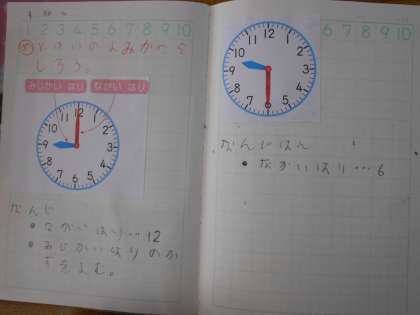 1 2 3 4 5 6 7 8 9 10
め とけいのよみかたを
しろう。
みじかい はり ながい はり
12
11 1
10 2
9 3
8 4
7 5
6
なんじ
・ながいはり…12
・みじかいはりのか
ずをよむ。
12
11 1
10 2
9 3
8 4
7 5
6
6 7 8 9 10
なんじはん
・ながいはり…6